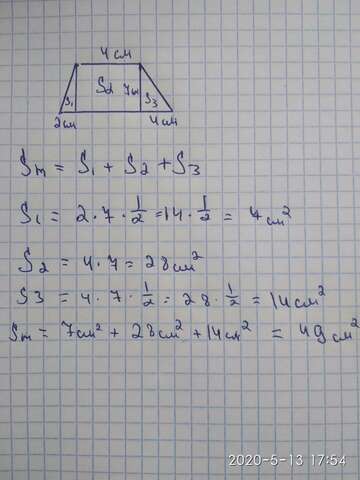 4 см
S₁ S₂ 7см S₃
2см 4см
Sт = S₁ + S₂ + S₃
S₁ = 2 · 7 · 1/2 = 14 · 1/2 = 7см²
S₂ = 4 · 7 = 28см²
S3 = 4 · 7 · 1/2 = 28 · 1/2 = 14см²
Sт = 7см² + 28см² + 14см² = 49см²
2020-5-13 17:54